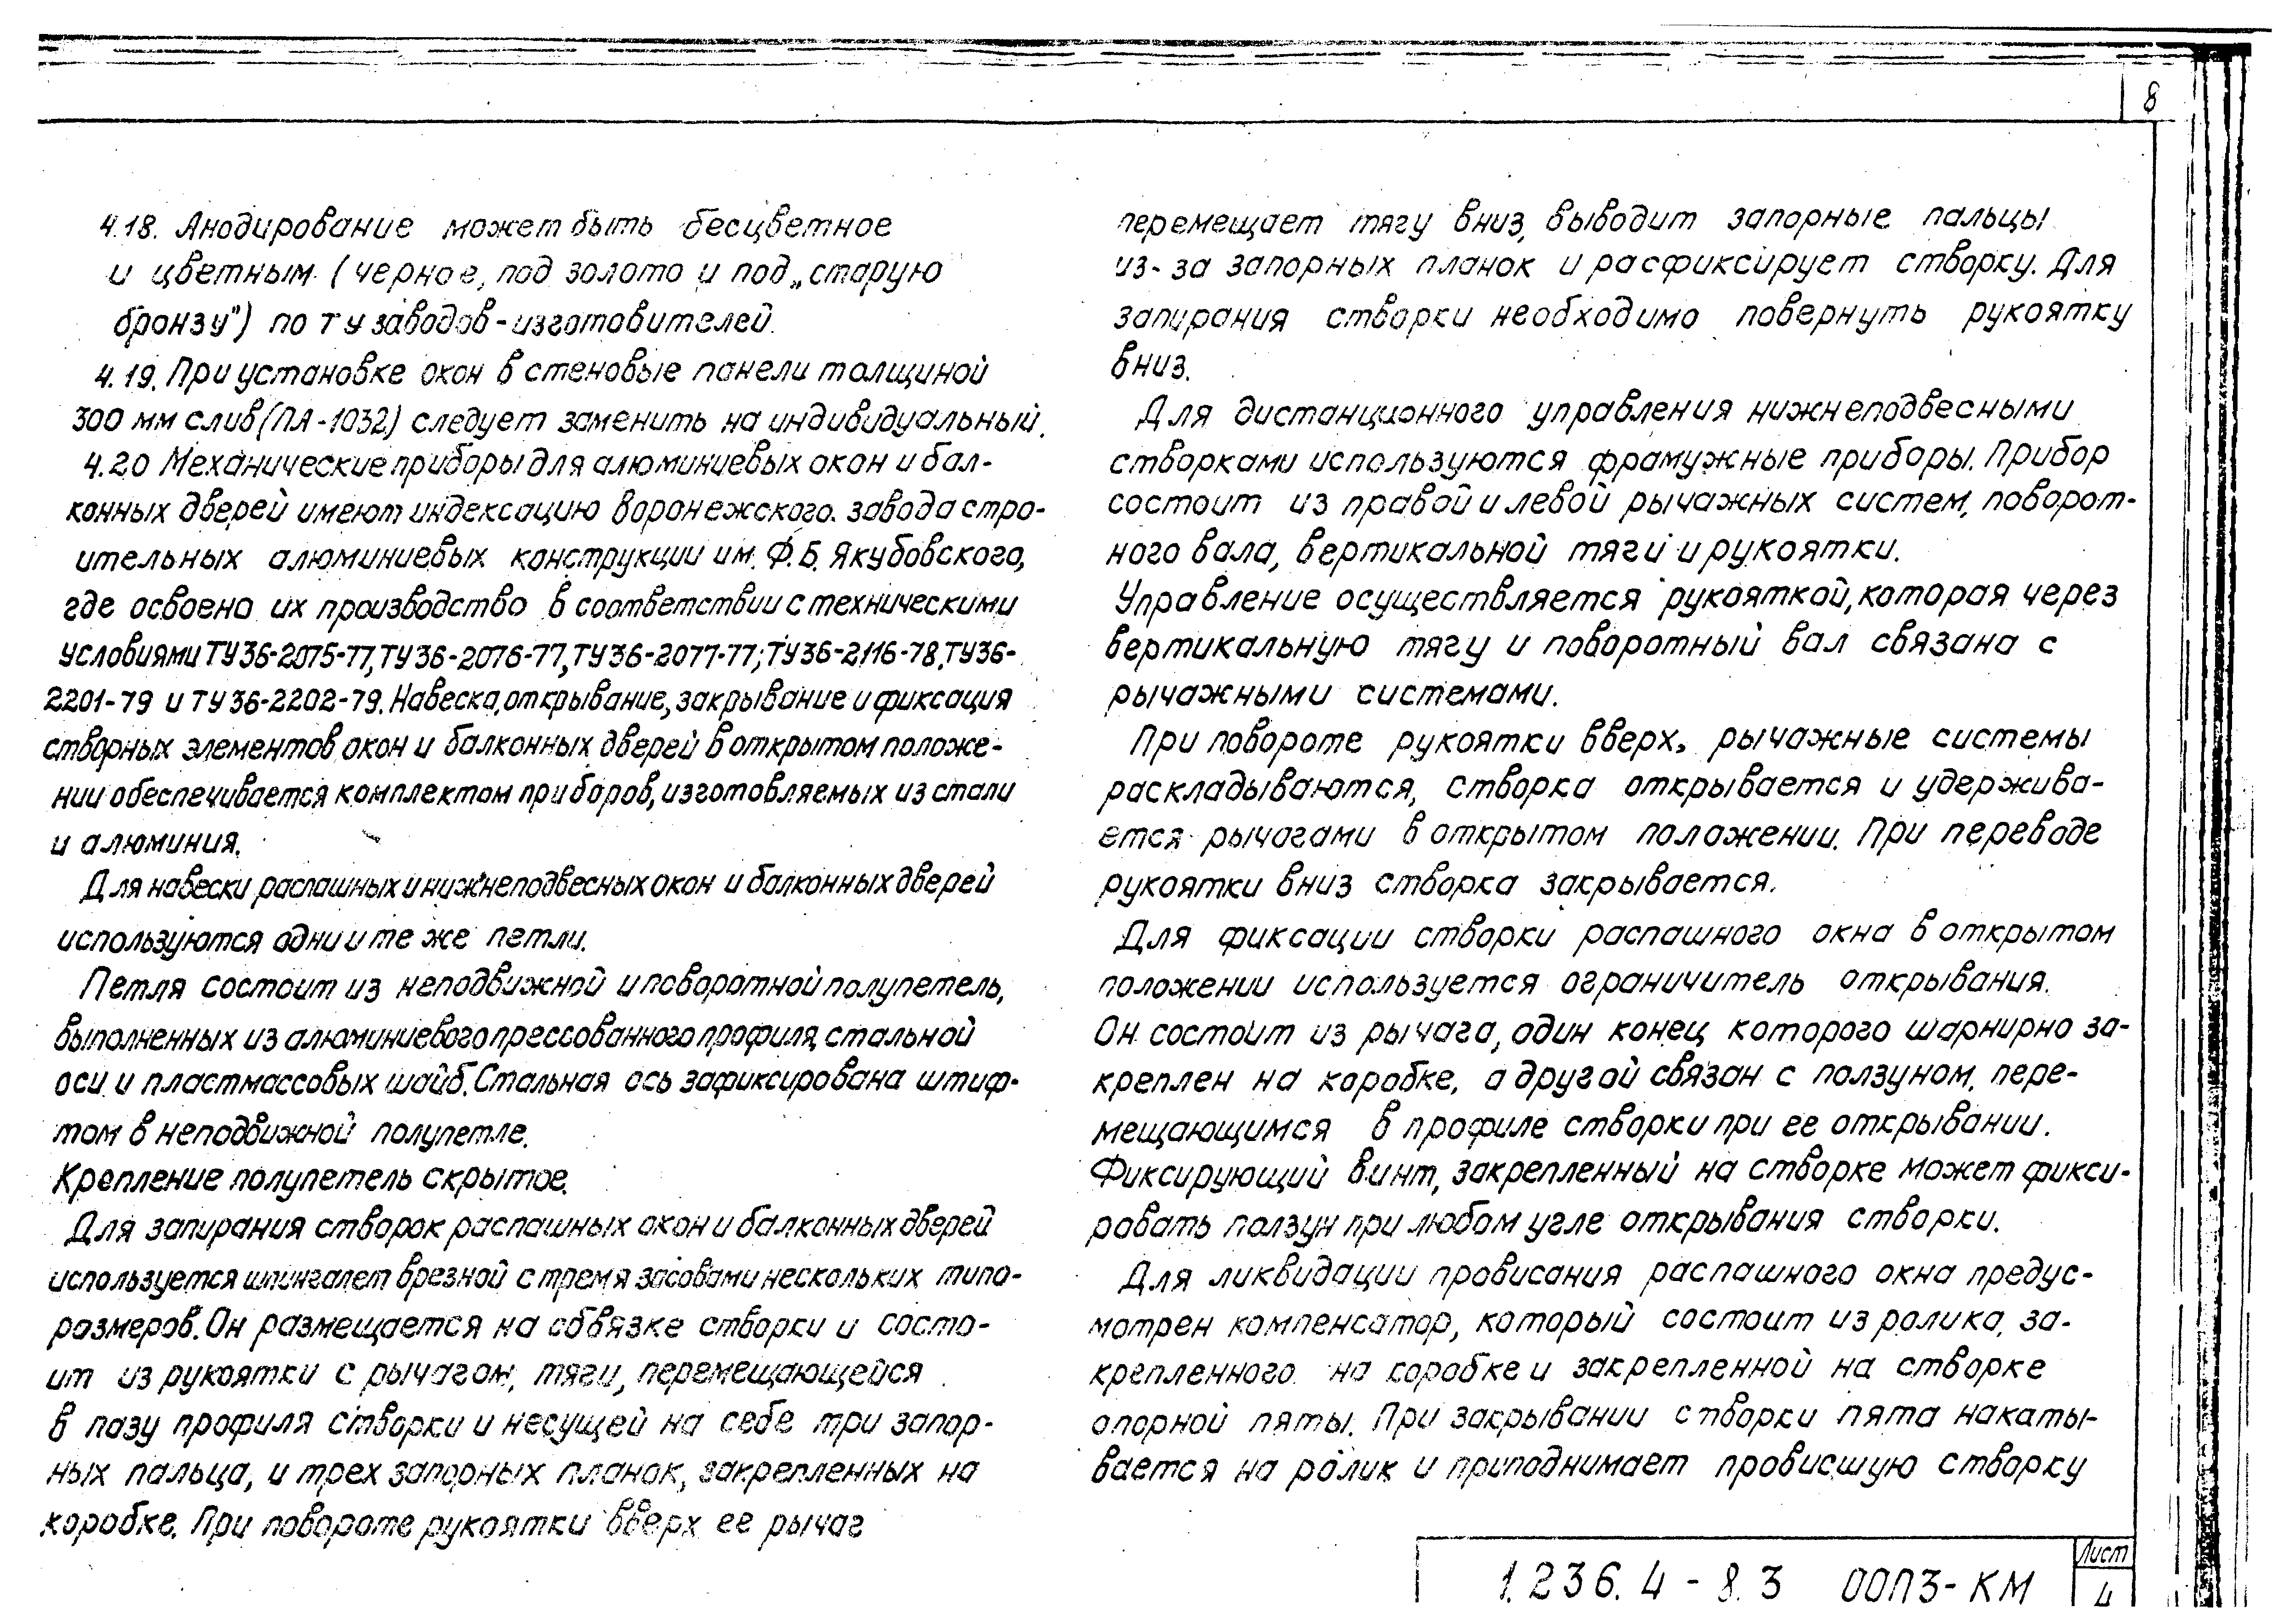 8
4.18. Анодирование может быть бесцветное
и цветным (черное, под золото и под „старую
бронзу") по ТУ заводов-изготовителей.
4.19. При установке окон в стеновые панели толщиной
300 мм слив (ПА-1032) следует заменить на индивидуальный.
4.20 Механические приборы для алюминиевых окон и бал-
конных дверей имеют индексацию Воронежского завода стро-
ительных алюминиевых конструкции им. Ф.Б. Якубовского,
где освоено их производство в соответствии с техническими
условиями ТУ36-2075-77, ТУ36-2076-77, ТУ36-2077-77; ТУ36-2116-78, ТУ36-
2201-79 и ТУ 36-2202-79. Навеска, открывание, закрывание и фиксация
створных элементов окон и балконных дверей в открытом положе-
нии обеспечивается комплектом приборов, изготовляемых из стали
и алюминия.
Для навески распашных и нижнеподвесных окон и балконных дверей
используются одни и те же петли.
Петля состоит из неподвижной и поворотной полупетель,
выполненных из алюминиевого прессованного профиля, стальной
оси и пластмассовых шайб. Стальная ось зафиксирована штиф-
том в неподвижной полупетле.
Крепление полупетель скрытое.
Для запирания створок распашных окон и балконных дверей
используется шпингалет врезной с тремя засовами нескольких типо-
размеров. Он размещается на обвязке створки и состо-
ит из рукоятки с рычагом, тяги, перемещающейся
в пазу профиля створки и несущей на себе три запор-
ных пальца, и трех запорных планок, закрепленных на
коробке. При повороте рукоятки вверх ее рычаг
перемещает тягу вниз, выводит запорные пальцы
из-за запорных планок и расфиксирует створку. Для
запирания створки необходимо повернуть рукоятку
вниз.
Для дистанционного управления нижнеподвесными
створками используются фрамужные приборы. Прибор
состоит из правой и левой рычажных систем, поворот-
ного вала, вертикальной тяги и рукоятки.
Управление осуществляется рукояткой, которая через
вертикальную тягу и поворотный вал связана с
рычажными системами.
При повороте рукоятки вверх, рычажные системы
раскладываются, створка открывается и удержива-
ется рычагами в открытом положении. При переводе
рукоятки вниз створка закрывается.
Для фиксации створки распашного окна в открытом
положении используется ограничитель открывания.
Он состоит из рычага, один конец которого шарнирно за-
креплен на коробке, а другой связан с ползуном, пере-
мещающимся в профиле створки при ее открывании.
Фиксирующий винт, закрепленный на створке может фикси-
ровать ползун при любом угле открывания створки.
Для ликвидации провисания распашного окна предус-
мотрен компенсатор, который состоит из ролика, за-
крепленного на коробке и закрепленной на створке
опорной пяты. При закрывании створки пята накаты-
вается на ролик и приподнимает провисшую створку
1.236.4-8.3 00ПЗ-КМ
Лист
4